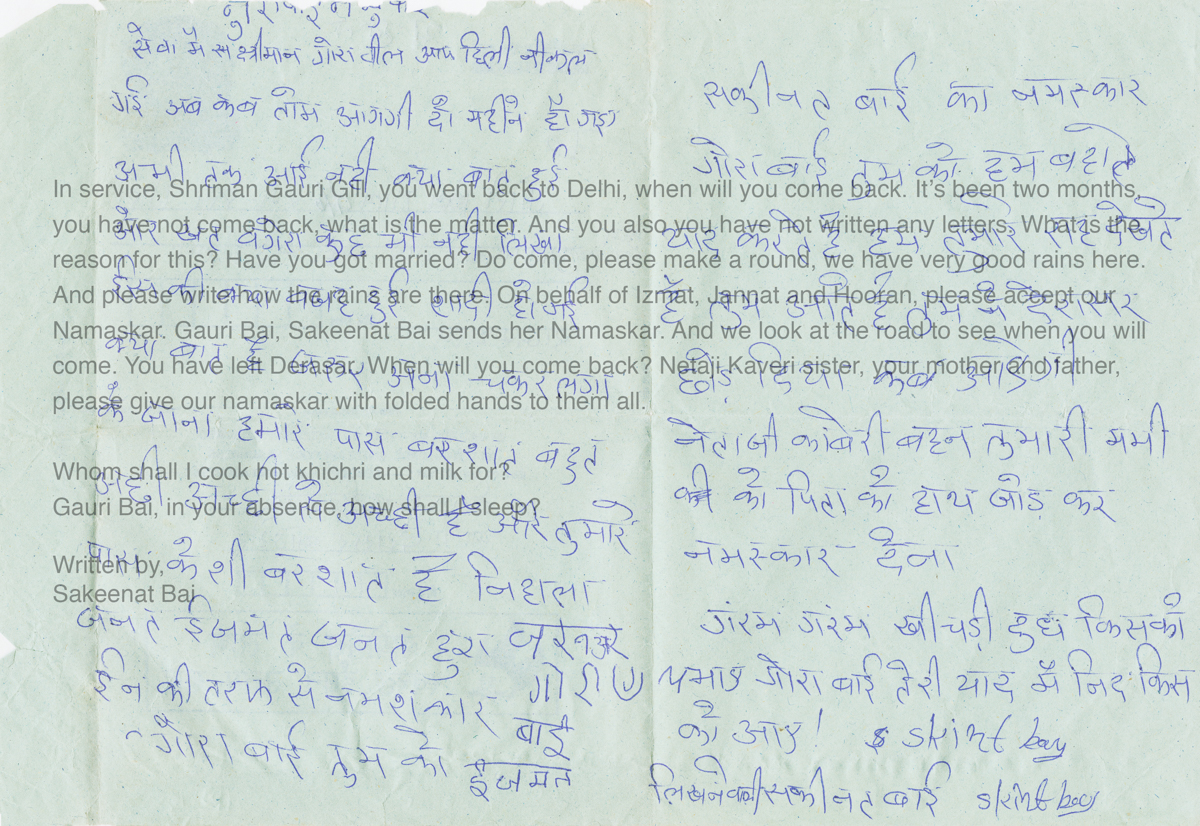 सेवा मै स श्रीमान गोरा वील आप दिली नीकल
गई अब कब तोम आगगी दो महीने हो गइ
अभी तक आई नही क्या बात हुई
और खत वगेरा कुछ भी नही लिखा
ईस की क्या वजह हुई शादी हो गई
क्या बात है जरुर अेमा चकर लगा
के जाना हमारे पास बरशात बहुत
अच्छी है और तुमारे
पास केशी बरशात है
जनत ईजमत जनत हुरा
ईन की तरफ से नमशकार
गोरा बाई तुम को
बाई
ईजमत
सकीनत बाई का नमस्कार
गोरा बाई तुम को हम बहोत
याद करते है हम तुमारे राह देखते
है तुम आते है तुम ने देरासर
छोड़ दिया कब आओगी
नेताजी कावेरी बहन तुमारी ममी
की को पिता को हाथ जोड़ कर
नमस्कार देना
गंरम गंरम खीचड़ी दुध किसको
गोरा बाई तेरी याद मैं निद किस
को आइ! skint bay
लिखनेवाली सकीनत बाई skint bay
In service, Shriman Gauri Gill, you went back to Delhi, when will you come back. It's been two months,
you have not come back, what is the matter. And you also you have not written any letters. What is the
reason for this? Have you got married? Do come, please make a round, we have very good rains here.
And please write how the rains are there. On behalf of Izmat, Jannat and Hooran, please accept our
Namaskar. Gauri Bai, Sakeenat Bai sends her Namaskar. And we look at the road to see when you will
come. You have left Derasar. When will you come back? Netaji Kaveri sister, your mother and father,
please give our namaskar with folded hands to them all.
Whom shall I cook hot khichri and milk for?
Gauri Bai, in your absence, how shall I sleep?
Written by,
Sakeenat Bai